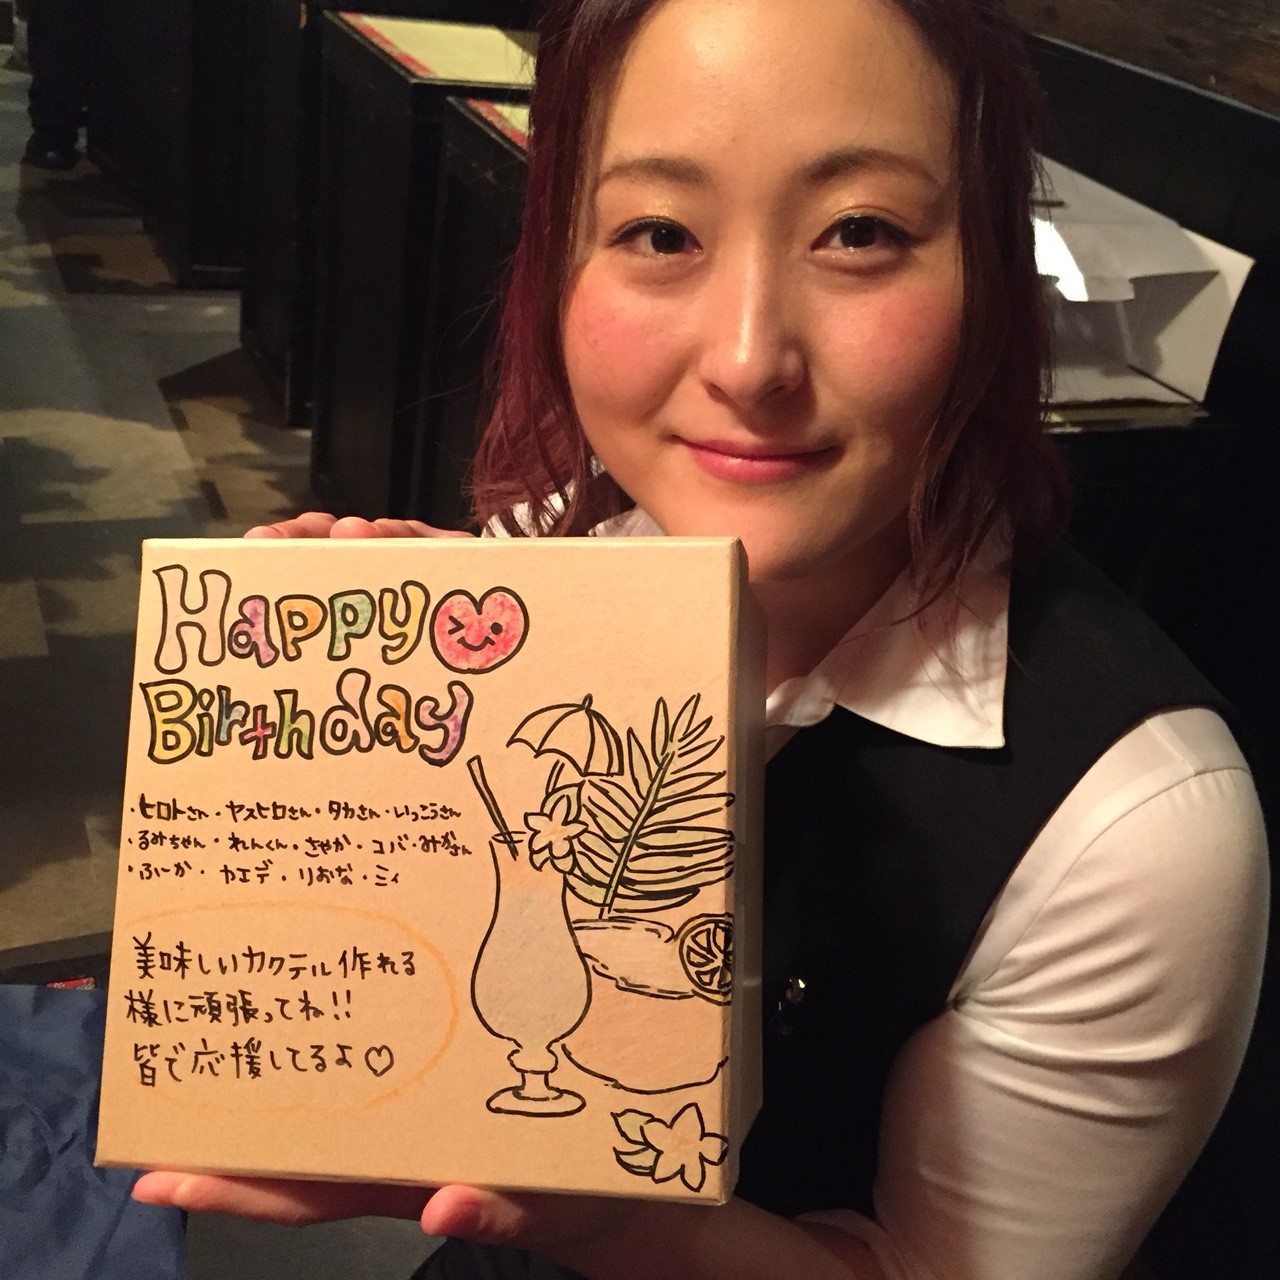 Happy
Birthday
・ヒロトさん・ヤスヒロさん・タカさん・いっこうさん
・るみちゃん・れんくん・さやか・コバ・みかさん
・ふーか・カエデ・りおな・ミィ
美味しいカクテル作れる
様に頑張ってね!!
皆で応援してるよ♡